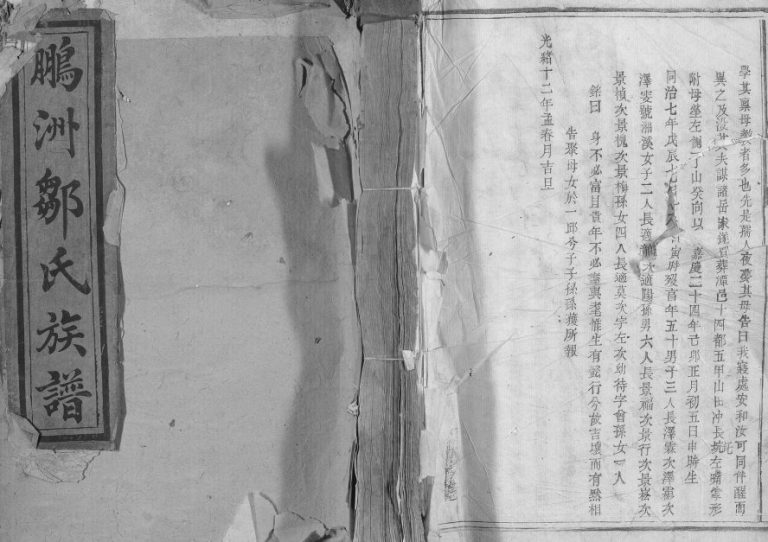 鵬洲鄒氏族譜
學其稟母教者多也先是孺人夜夢其母告曰我窀處安和汝可同伴醒而
異之及沒其夫謀諸岳家遂買葬漳邑十四都五甲山田冲長坑左嘴掌形
附母塋左側丁山癸向以嘉慶二十四年己卯正月初五日申時生
同治七年戊辰七月十六日寅時歿享年五十男子三人長澤霖次澤霸次
澤雯號湘溪女子二人長適顏次適陽孫男六人長景福次景行次景崧次
景楨次景槐次景梅孫女四人長適莫次字左次幼待字曾孫女一人
銘曰 身不必富且貴年不必耋與耄惟生有懿行兮故吉壤而有烝相
告聚母女於一邱兮子子孫孫獲所報
光緒十二年孟春月吉旦